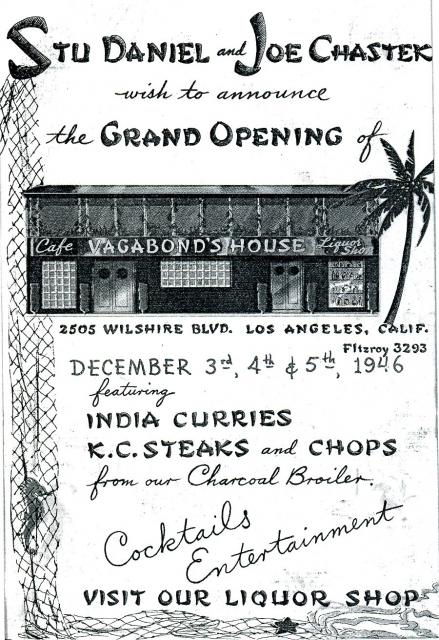 STU DANIEL and JOE CHASTEK
wish to announce
the GRAND OPENING of
Cafe VAGABOND'S HOUSE Liquor Shop
2505 WILSHIRE BLVD. LOS ANGELES, CALIF.
FItzroy 3293
DECEMBER 3rd, 4th & 5th, 1946
featuring
INDIA CURRIES
K.C. STEAKS and CHOPS
from our Charcoal Broiler.
Cocktails
Entertainment
VISIT OUR LIQUOR SHOP